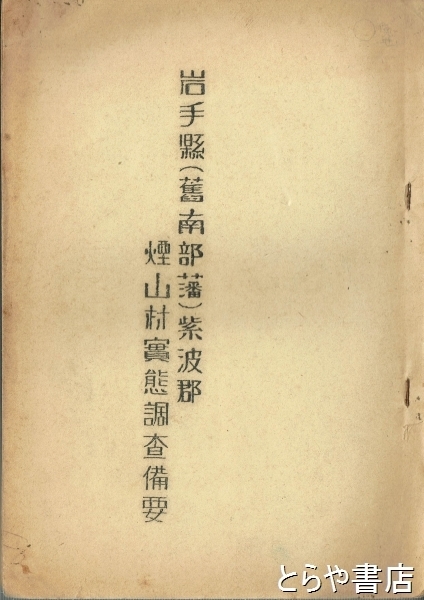 岩手縣(舊南部藩)紫波郡
煙山村實態調査備要
とらや書店